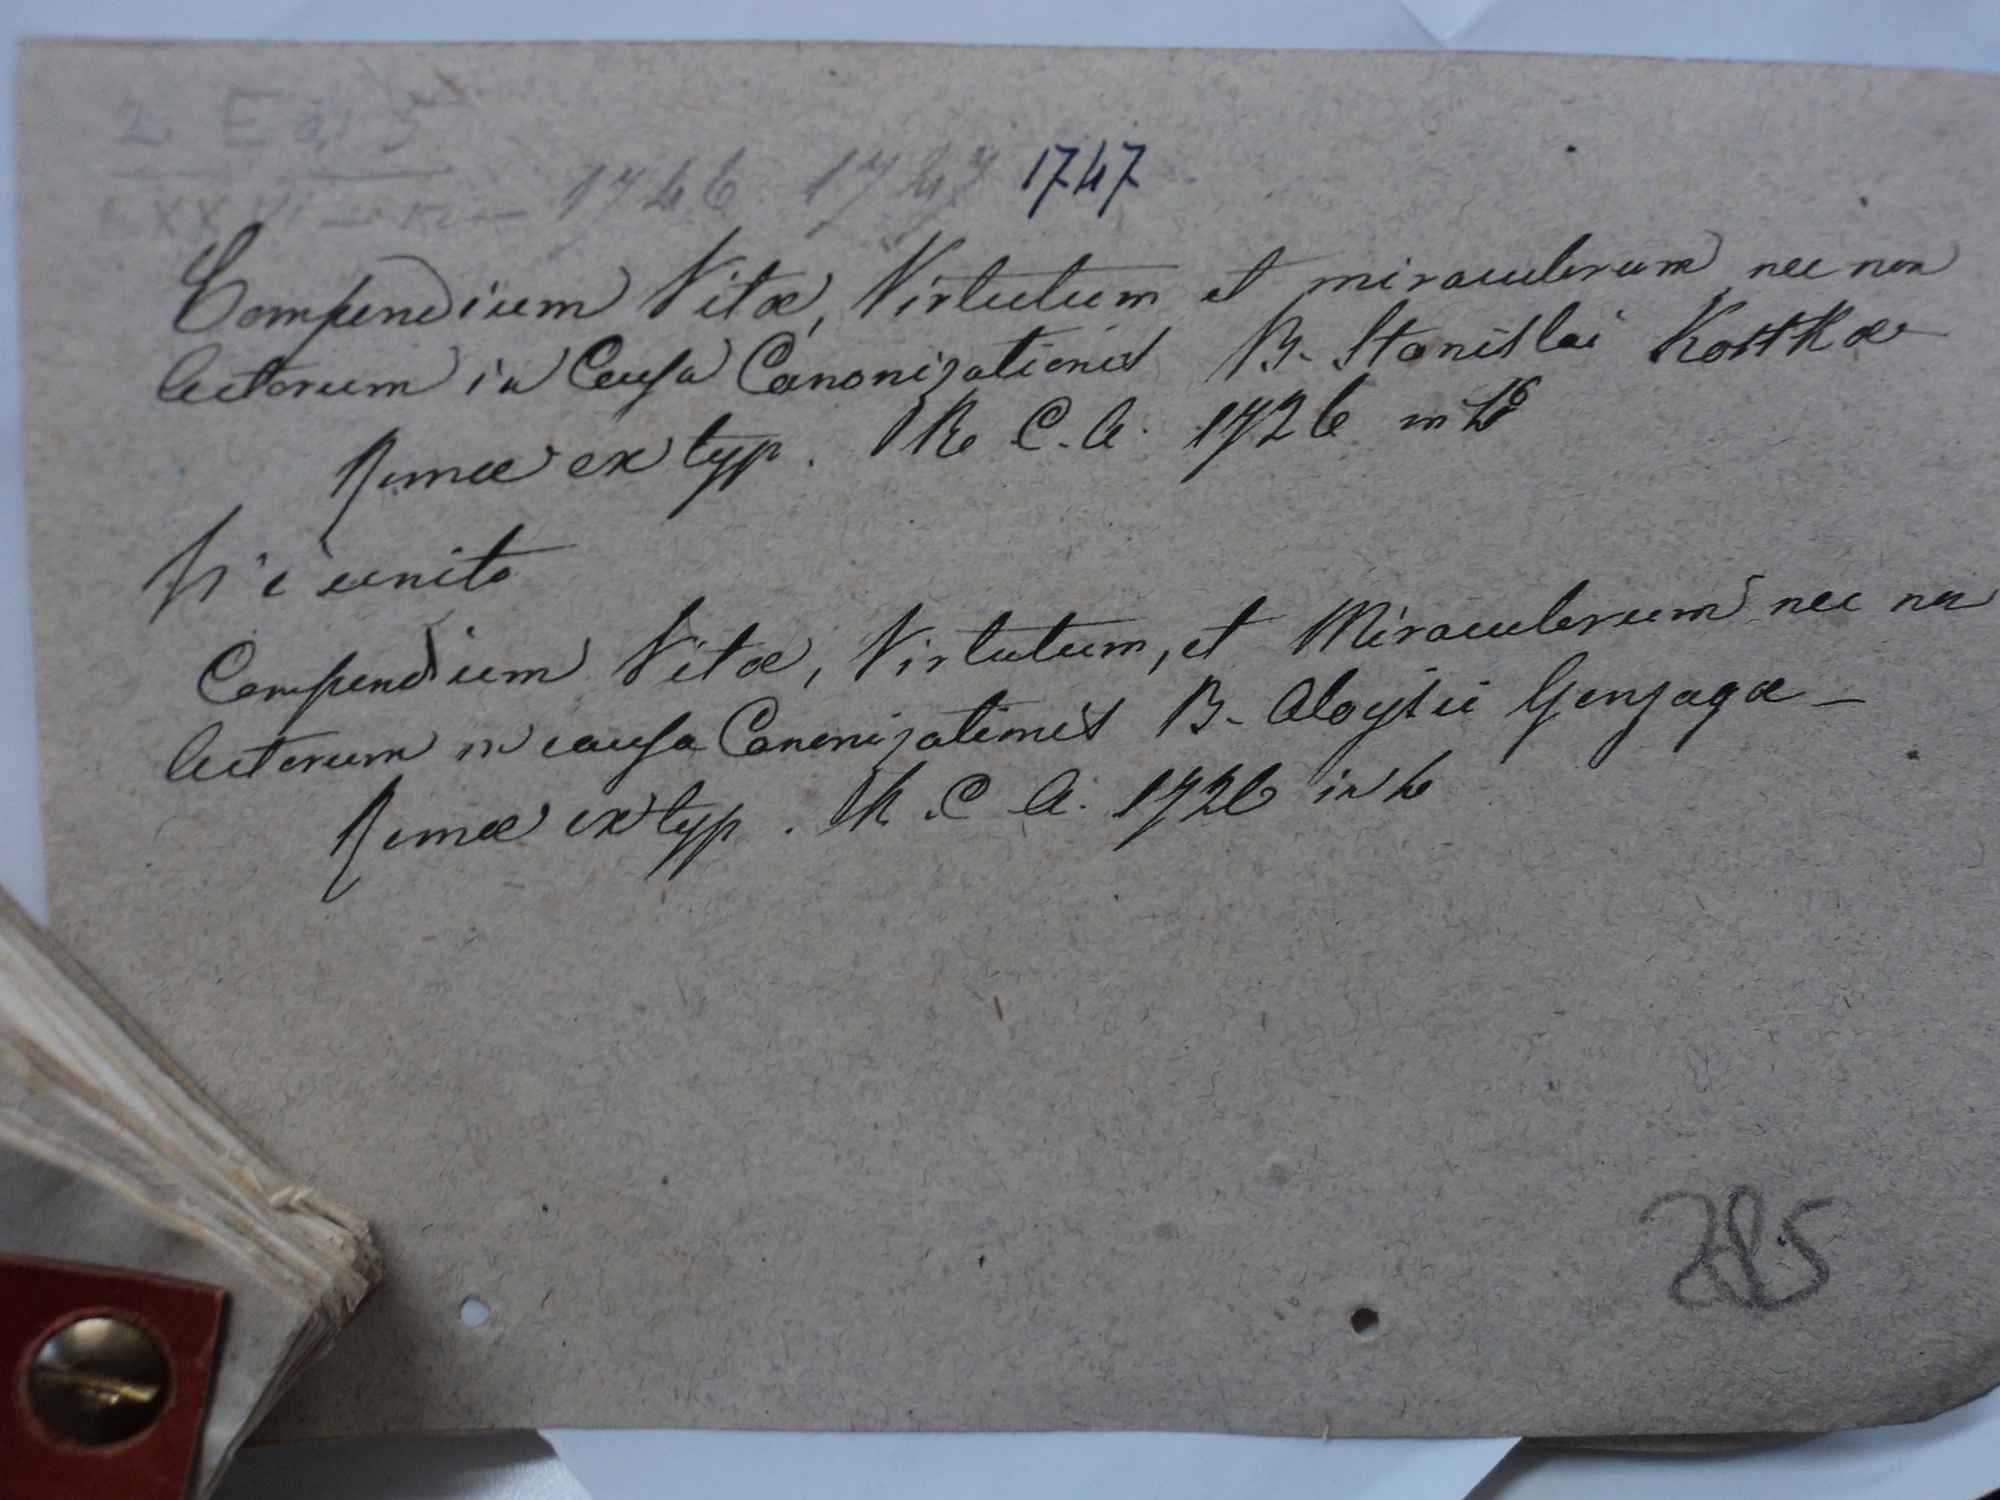 1746 1747 1747
Compendium Vitæ, Virtutum et miraculorum nec non
Actorum in Causa Canonizationis B. Stanislai Kostkæ
Romæ ex typ. R C. A. 1726 in
Vi è unito
Compendium Vitæ, Virtutum, et Miraculorum nec non
Actorum in causa Canonizationis B. Aloysii Gonzagæ -
Romæ ex typ. R. C A. 1726 in 4
285